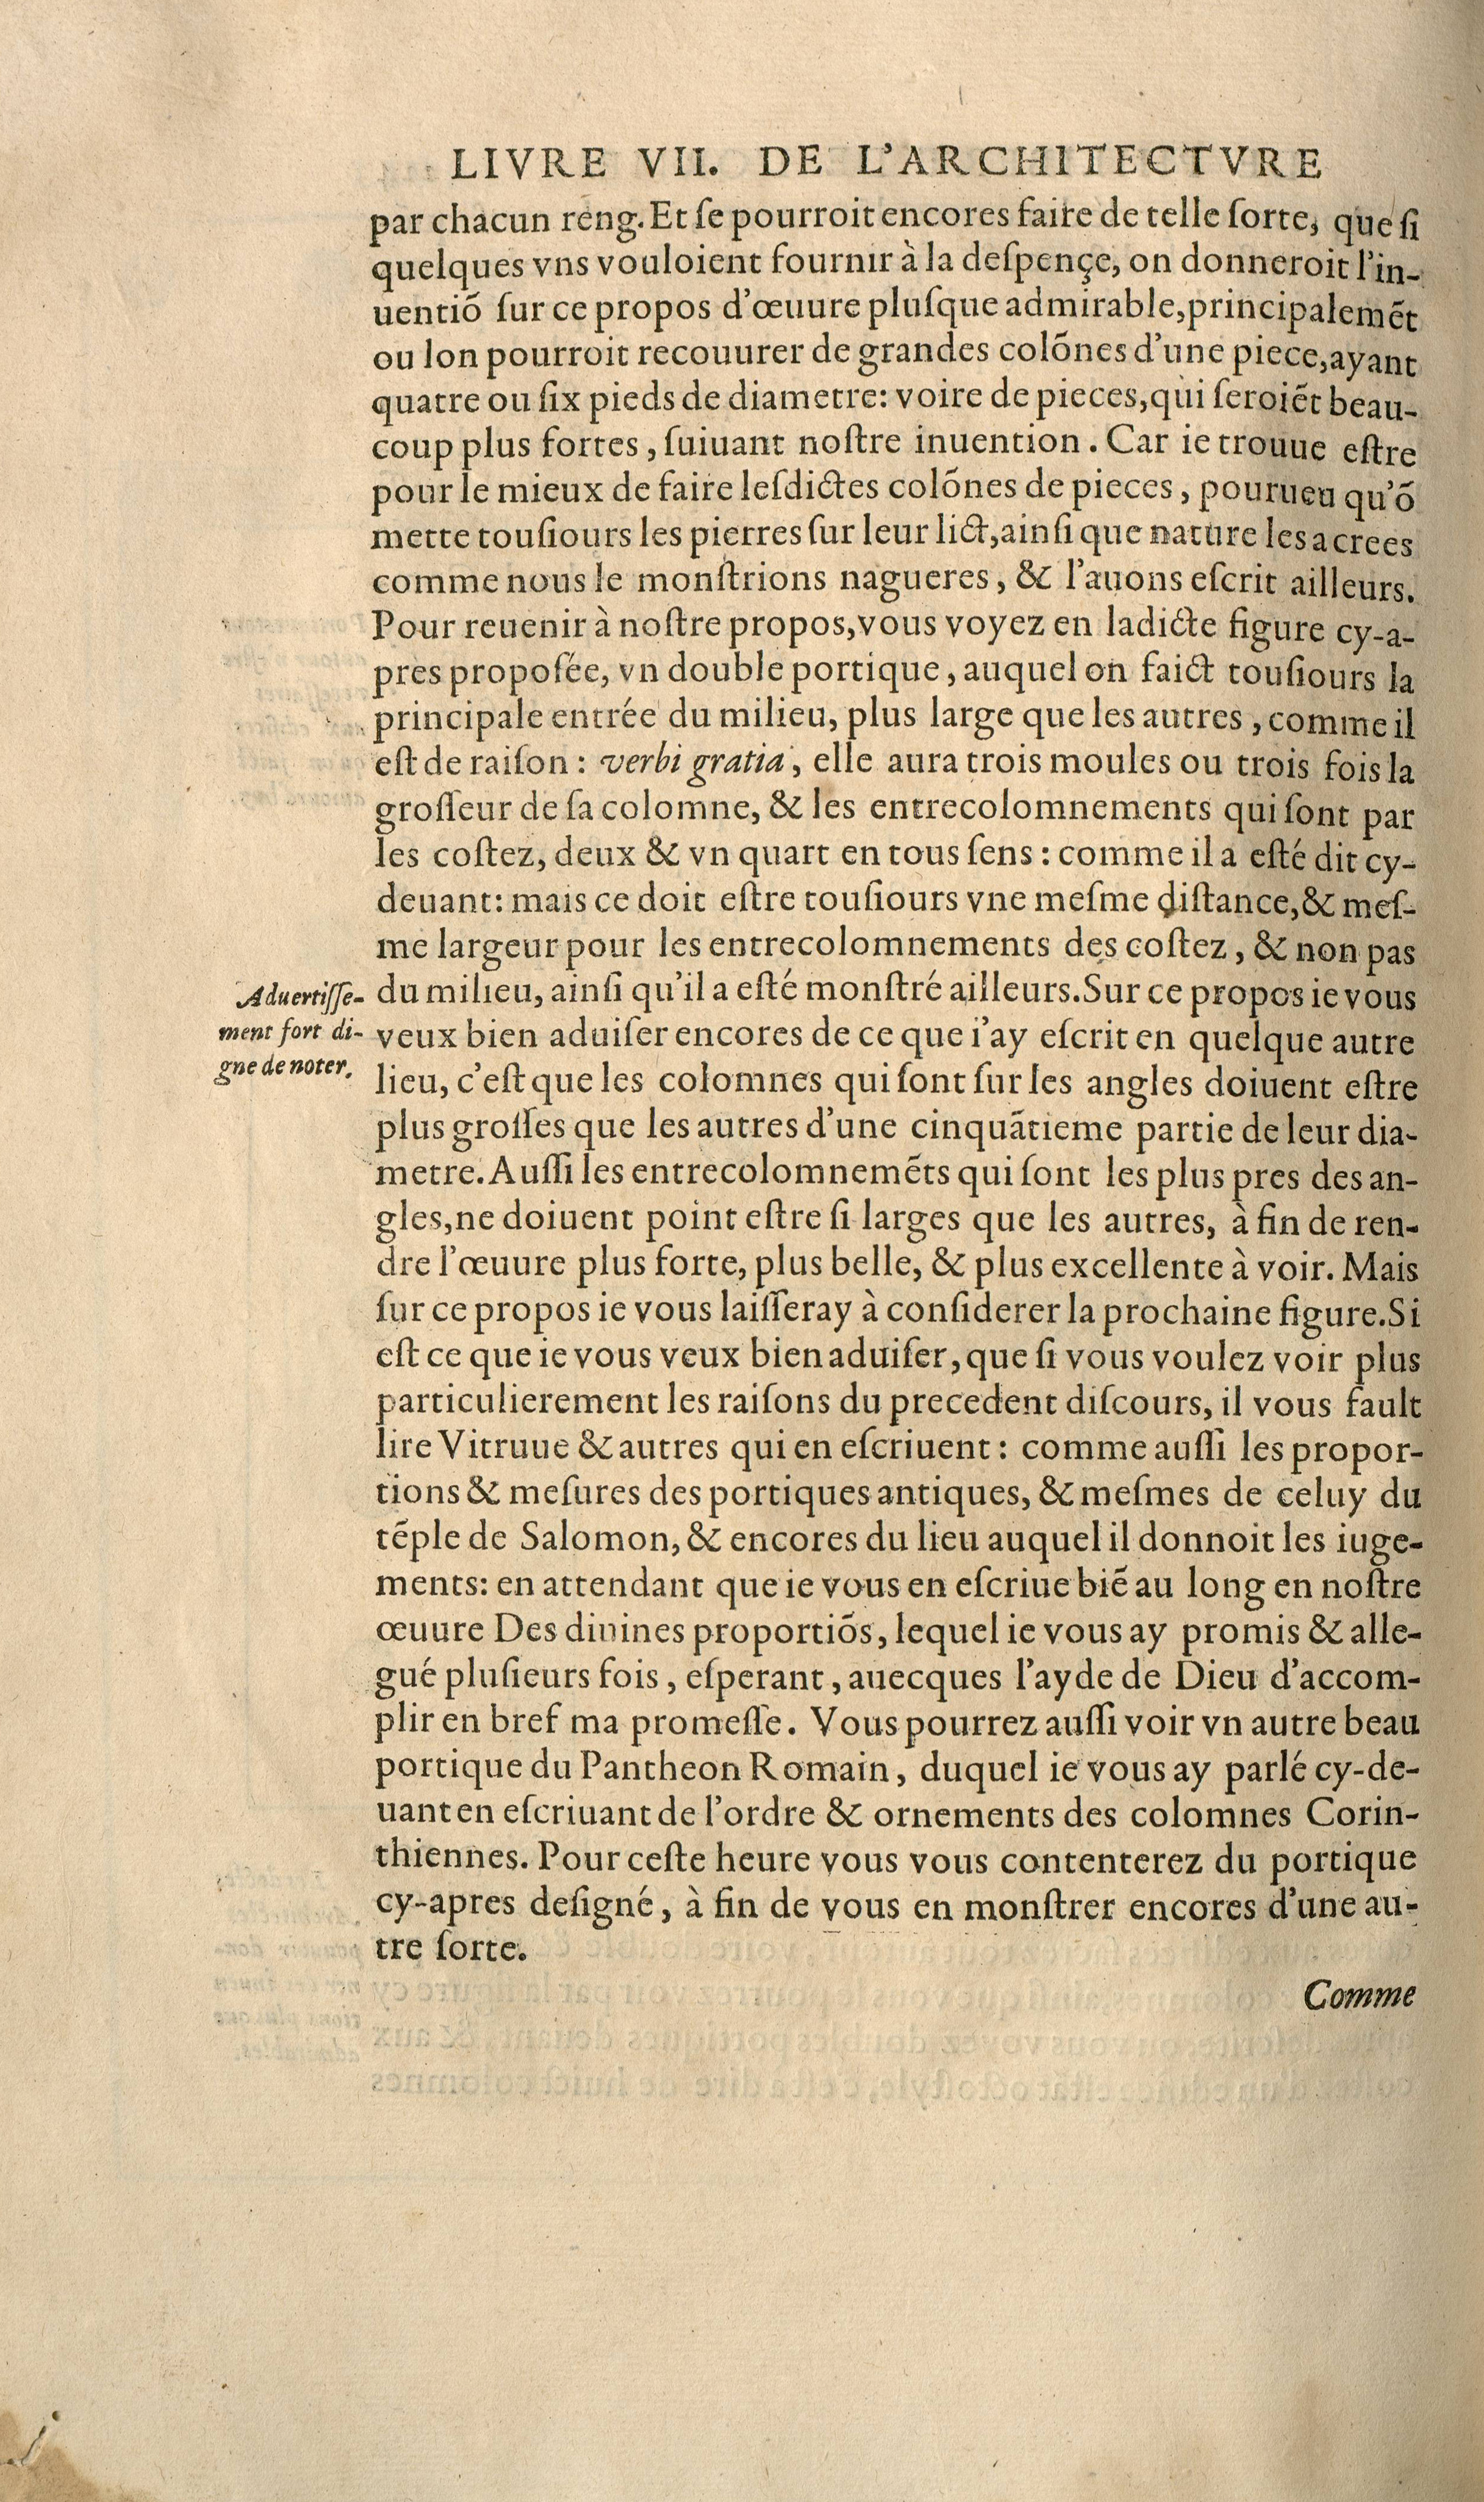 LIVRE VII. DE L'ARCHITECTVRE
par chacun reng. Et ſe pourroit encores faire de telle ſorte, que ſi
quelques vns vouloient fournir à la deſpençe, on donneroit l'in-
uentiõ ſur ce propos d'œuure pluſque admirable, principalemẽt
ou lon pourroit recouurer de grandes colõnes d'une piece, ayant
quatre ou ſix pieds de diametre: voire de pieces, qui ſeroiẽt beau-
coup plus fortes, ſuiuant noſtre inuention. Car ie trouue eſtre
pour le mieux de faire leſdictes colõnes de pieces, pourueu qu'õ
mette touſiours les pierres ſur leur lict, ainſi que nature les a crees
comme nous le monſtrions nagueres, & l'auons eſcrit ailleurs.
Pour reuenir à noſtre propos, vous voyez en ladicte figure cy-a-
pres propoſée, vn double portique, auquel on faict touſiours la
principale entrée du milieu, plus large que les autres, comme il
eſt de raiſon: verbi gratia, elle aura trois moules ou trois fois la
groſſeur de ſa colomne, & les entrecolomnements qui ſont par
les coſtez, deux & vn quart en tous ſens: comme il a eſté dit cy-
deuant: mais ce doit eſtre touſiours vne meſme diſtance, & meſ-
me largeur pour les entrecolomnements des coſtez, & non pas
du milieu, ainſi qu'il a eſté monſtré ailleurs. Sur ce propos ie vous
Aduertiſſe-
ment fort di-
gne de noter.
veux bien aduiſer encores de ce que i'ay eſcrit en quelque autre
lieu, c'eſt que les colomnes qui ſont ſur les angles doiuent eſtre
plus groſſes que les autres d'une cinquãtieme partie de leur dia-
metre. Auſſi les entrecolomnemẽts qui ſont les plus pres des an-
gles, ne doiuent point eſtre ſi larges que les autres, à fin de ren-
dre l'œuure plus forte, plus belle, & plus excellente à voir. Mais
ſur ce propos ie vous laiſſeray à conſiderer la prochaine figure. Si
eſt ce que ie vous veux bien aduiſer, que ſi vous voulez voir plus
particulierement les raiſons du precedent diſcours, il vous fault
lire Vitruue & autres qui en eſcriuent: comme auſſi les propor-
tions & meſures des portiques antiques, & meſmes de celuy du
tẽple de Salomon, & encores du lieu auquel il donnoit les iuge-
ments: en attendant que ie vous en eſcriue biẽ au long en noſtre
œuure Des diuines proportiõs, lequel ie vous ay promis & alle-
gué pluſieurs fois, eſperant, auecques l'ayde de Dieu d'accom-
plir en bref ma promeſſe. Vous pourrez auſſi voir vn autre beau
portique du Pantheon Romain, duquel ie vous ay parlé cy-de-
uant en eſcriuant de l'ordre & ornements des colomnes Corin-
thiennes. Pour ceſte heure vous vous contenterez du portique
cy-apres deſigné, à fin de vous en monſtrer encores d'une au-
tre ſorte.
Comme